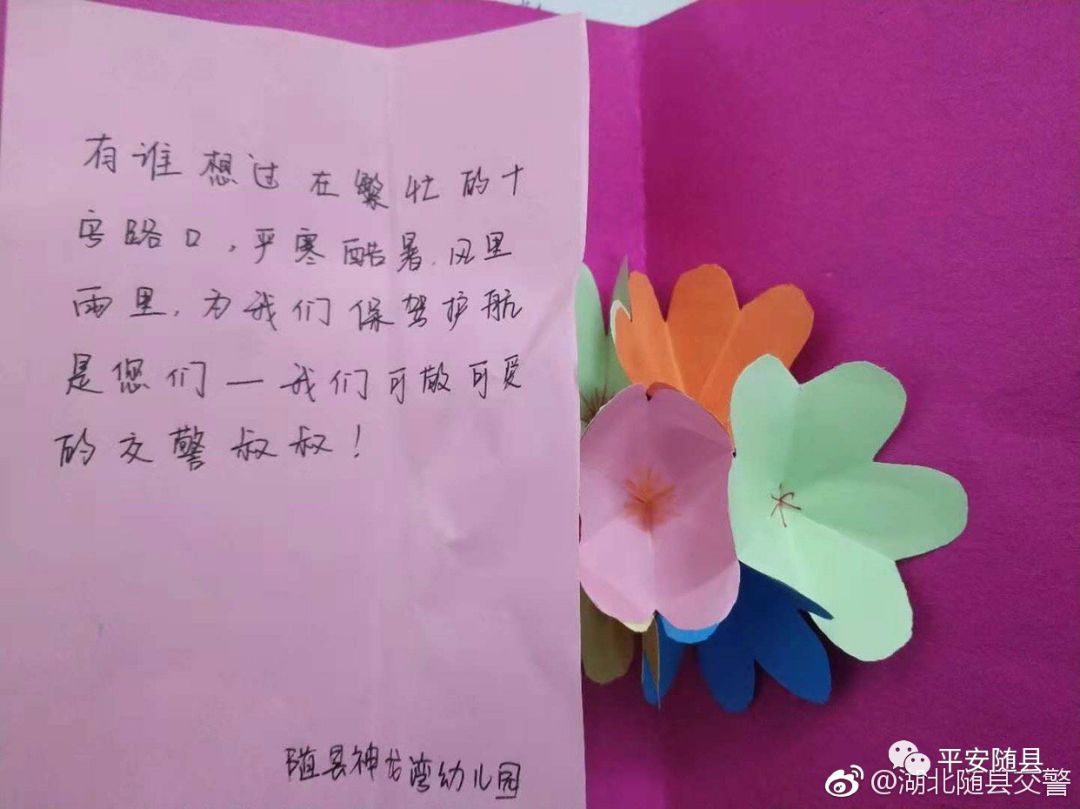 有谁想过在繁忙的十
字路口，严寒酷暑、风里
雨里，为我们保驾护航
是您们一我们可敬可爱
的交警叔叔！
随县神龙湾幼儿园
平安随县
@湖北随县交警